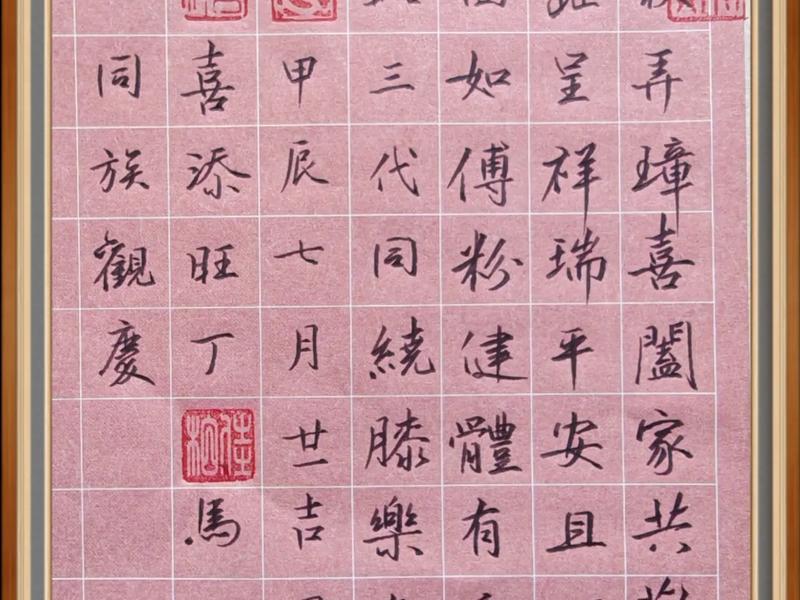 弄璋喜闔家共
呈祥瑞平安且
如傅粉健體有
三代同繞膝樂
甲辰七月廿一吉
喜添旺丁
馬
同族觀慶